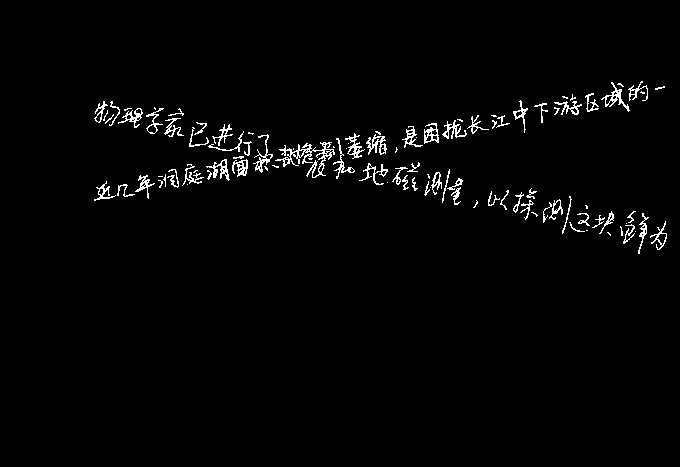 物理学家已进行了地磁测量，以探测这块鲜为
近几年洞庭湖面积萎缩，是困扰长江中下游区域的一